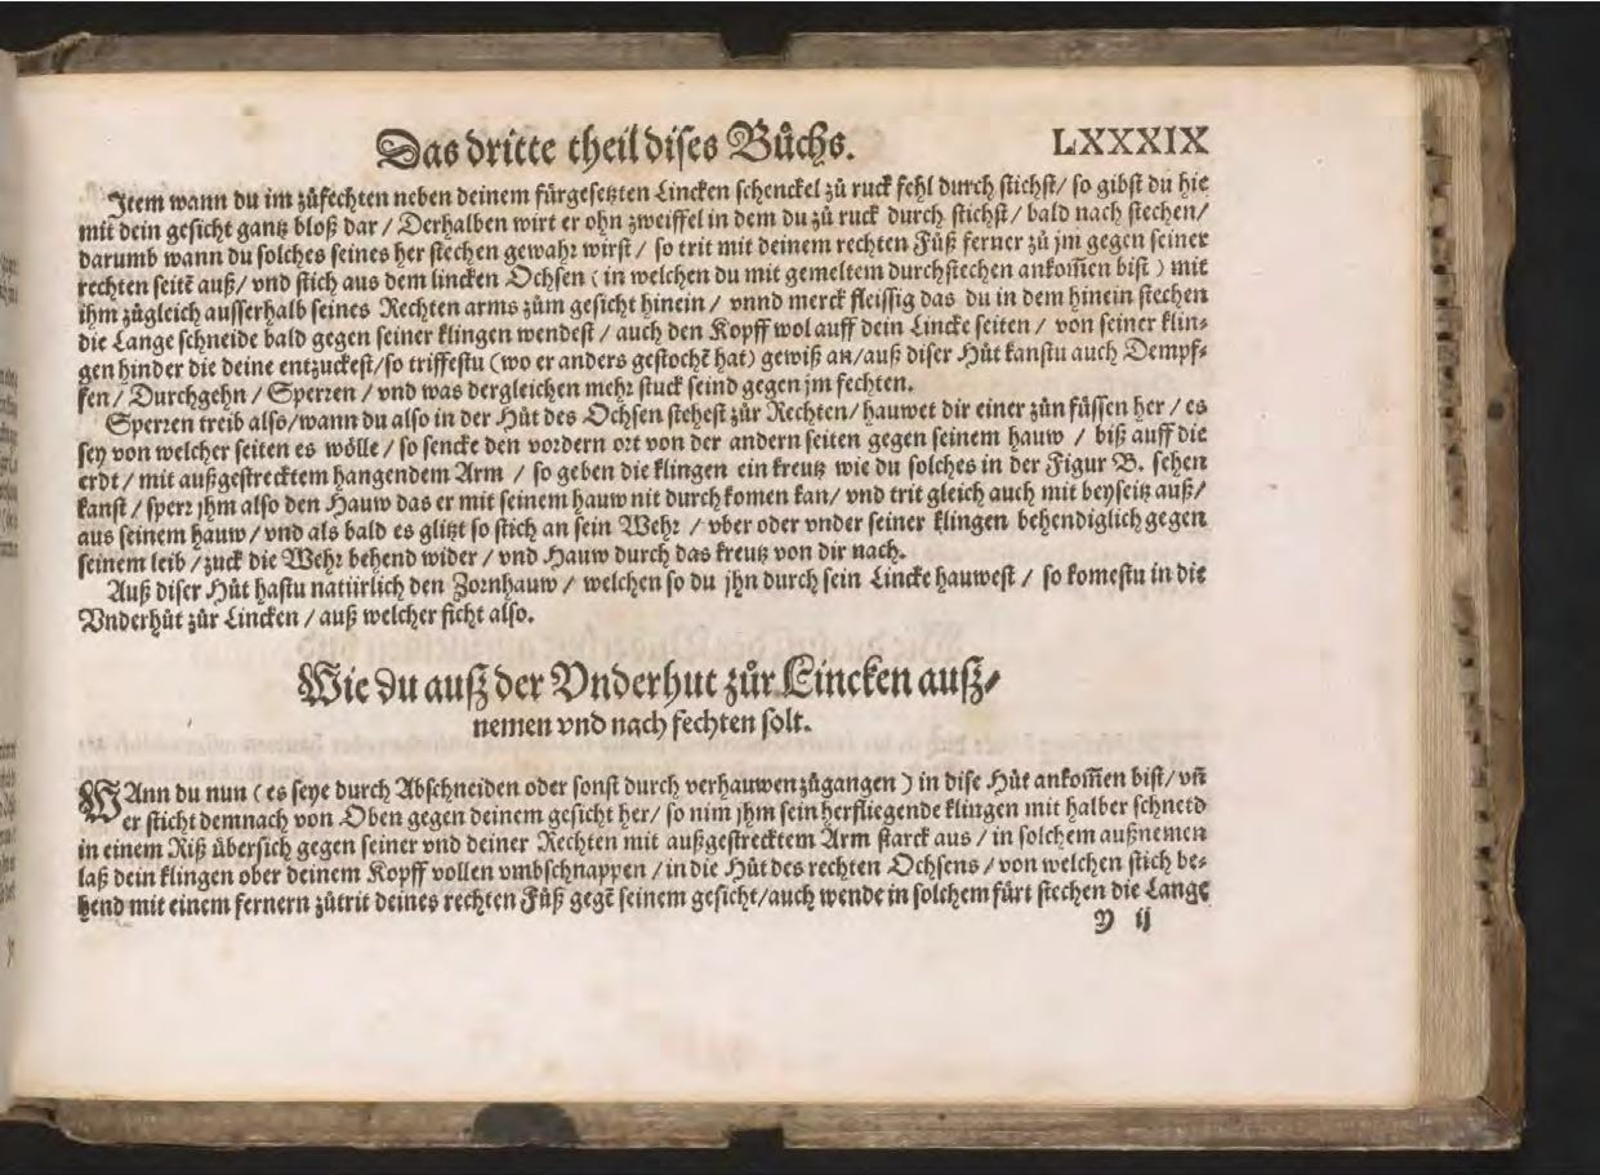 Das dritte theil dises Bůchs. LXXXIX
Item wann du im zůfechten neben deinem fürgesetzten Lincken schenckel zů ruck fehl durch stichst / so gibst du hie
mit dein gesicht gantz bloß dar / Derhalben wirt er ohn zweiffel in dem du zů ruck durch stichst / bald nach stechen /
darumb wann du solches seines her stechen gewahr wirst / so trit mit deinem rechten Fůß ferner zů jm gegen seiner
rechten seitẽ auß / vnd stich aus dem lincken Ochsen ( in welchen du mit gemeltem durchstechen ankom̃en bist ) mit
ihm zůgleich ausserhalb seines Rechten arms zům gesicht hinein / vnnd merck fleissig das du in dem hinein stechen
die Lange schneide bald gegen seiner klingen wendest / auch den Kopff wol auff dein Lincke seiten / von seiner klin⸗
gen hinder die deine entzuckest / so triffestu (wo er anders gestochẽ hat) gewiß an / auß diser Hůt kanstu auch Dempf⸗
fen / Durchgehn / Sperren / vnd was dergleichen mehr stuck seind gegen jm fechten.
Sperren treib also / wann du also in der Hůt des Ochsen stehest zůr Rechten / hauwet dir einer zůn füssen her / es
sey von welcher seiten es wölle / so sencke den vordern ort von der andern seiten gegen seinem hauw / biß auff die
erdt / mit außgestrecktem hangendem Arm / so geben die klingen ein kreutz wie du solches in der Figur B. sehen
kanst / sperr jhm also den Hauw das er mit seinem hauw nit durch komen kan / vnd trit gleich auch mit beyseitz auß /
aus seinem hauw / vnd als bald es glitzt so stich an sein Wehr / vber oder vnder seiner klingen behendiglich gegen
seinem leib / zuck die Wehr behend wider / vnd Hauw durch das kreutz von dir nach.
Auß diser Hůt hastu natürlich den Zornhauw / welchen so du jhn durch sein Lincke hauwest / so komestu in die
Vnderhůt zůr Lincken / auß welcher ficht also.
Wie du auß der Vnderhut zůr Lincken auß⸗
nemen vnd nach fechten solt.
WAnn du nun ( es seye durch Abschneiden oder sonst durch verhauwen zůgangen ) in dise Hůt ankom̃en bist / vñ
er sticht demnach von Oben gegen deinem gesicht her / so nim jhm sein herfliegende klingen mit halber schneid
in einem Riß übersich gegen seiner vnd deiner Rechten mit außgestrecktem Arm starck aus / in solchem außnemen
laß dein klingen ober deinem Kopff vollen vmbschnappen / in die Hůt des rechten Ochsens / von welchen stich be⸗
hend mit einem fernern zůtrit deines rechten Fůß gegẽ seinem gesicht / auch wende in solchem fürt stechen die Lange
Y ij